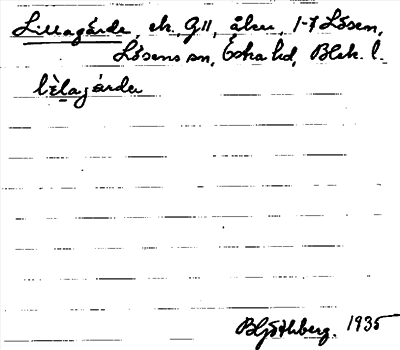 Lillagärde, ek. G11, åker, 1-7 Lösen,
Lösens sn, Östra hd, Blek. l.
lèlagárde
1935